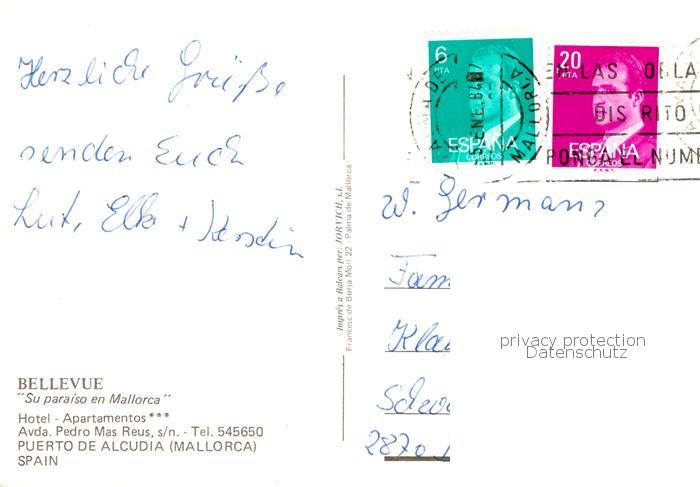 Herzliche Grüße
senden Euch
Lut, Elke + Kerstin
BELLEVUE
"Su paraíso en Mallorca"
Hotel - Apartamentos ***
Avda. Pedro Mas Reus, s/n. - Tel. 545650
PUERTO DE ALCUDIA (MALLORCA)
SPAIN
Imprés a Balears per: JORVICH, s.l.
Francesc de Borja Moll 22 - Palma de Mallorca
6 PTA
ESPAÑA
CORREOS
20 PTA
ESPAÑA
CORREOS
F.N.M.T.
ENE. 84
MALLORCA
EN LAS POBLA
DISTRITO
PONGA EL NUME
W. Germany
Fam
Kla
2870
privacy protection
Datenschutz